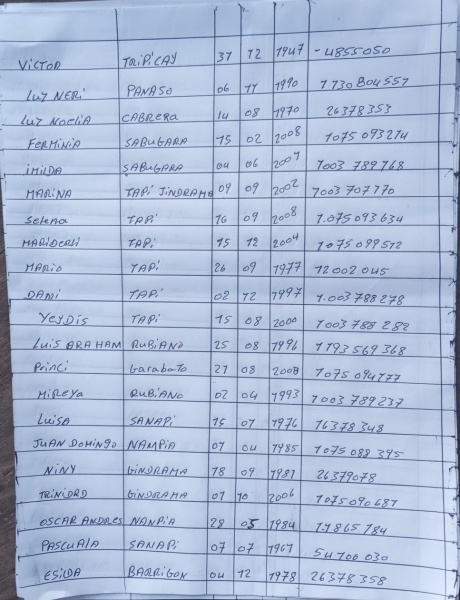 VICTOR TRIPICAY 31 12 1947 - 4855050
LUZ NERI PANASO 06 11 1990 1130804557
LUZ NOELIA CABRERA 14 08 1970 26378353
FERMINIA SABUGARA 15 02 2008 1075093214
IMILDA SABUGARA 04 06 2007 1003 789168
MARINA TAPI JINDRAMA 09 09 2002 1003707170
Selena TAPI 16 09 2008 1.075093634
MARIDERLI TAPI 15 12 2004 1075099512
MARIO TAPI 26 09 1977 12002045
DAMI TAPI 02 12 1997 1.003788278
YEYDIS TAPI 15 08 2000 1003788 282
LUIS ABRAHAM RUBIANO 25 08 1996 1193569368
Princi Garabato 21 08 2008 1075094177
MIREYA RUBIANO 02 04 1993 1003789237
LUISA SANAPI 15 07 1976 26378348
JUAN DOMINGO NAMPIA 07 04 1985 1075088395
NINY GINDRAMA 18 09 1981 26379078
TRINIDAD GINDRAMA 01 10 2006 1075090687
OSCAR ANDRES NANPIA 28 05 1984 11865184
PASCUALA SANAPI 07 07 1967 54106030
ESILDA BARRIGON 04 12 1978 26378358